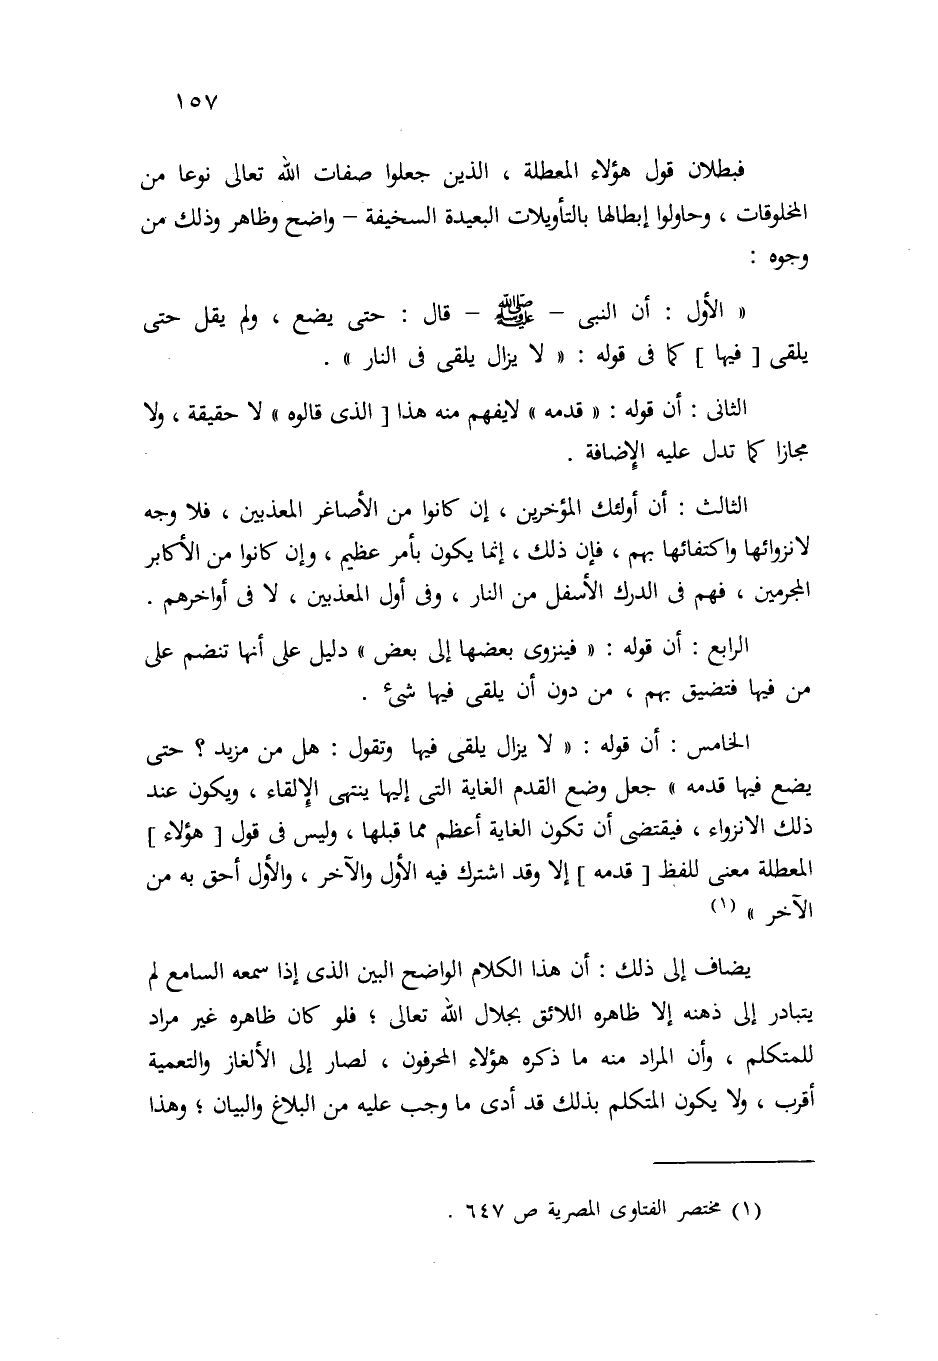 ١٥٧
فبطلان قول هؤلاء المعطلة ، الذين جعلوا صفات الله تعالى نوعا من
المخلوقات ، وحاولوا إبطالها بالتأويلات البعيدة السخيفة – واضح وظاهر وذلك من
وجوه :
« الأول : أن النبى – ﷺ – قال : حتى يضع ، ولم يقل حتى
يلقى [ فيها ] كما فى قوله : « لا يزال يلقى فى النار » .
الثانى : أن قوله : « قدمه » لايفهم منه هذا [ الذى قالوه » لا حقيقة ، ولا
مجازا كما تدل عليه الإضافة .
الثالث : أن أولئك المؤخرين ، إن كانوا من الأصاغر المعذبين ، فلا وجه
لانزوائها واكتفائها بهم ، فإن ذلك ، إنما يكون بأمر عظيم ، وإن كانوا من الأكابر
المجرمين ، فهم فى الدرك الأسفل من النار ، وفى أول المعذبين ، لا فى أواخرهم .
الرابع : أن قوله : « فينزوى بعضها إلى بعض » دليل على أنها تنضم على
من فيها فتضيق بهم ، من دون أن يلقى فيها شىء .
الخامس : أن قوله : « لا يزال يلقى فيها وتقول : هل من مزيد ؟ حتى
يضع فيها قدمه » جعل وضع القدم الغاية التى إليها ينتهى الإلقاء ، ويكون عند
ذلك الانزواء ، فيقتضى أن تكون الغاية أعظم مما قبلها ، وليس فى قول [ هؤلاء ]
المعطلة معنى للفظ [ قدمه ] إلا وقد اشترك فيه الأول والآخر ، والأول أحق به من
الآخر » (١)
يضاف إلى ذلك : أن هذا الكلام الواضح البين الذى إذا سمعه السامع لم
يتبادر إلى ذهنه إلا ظاهره اللائق بجلال الله تعالى ؛ فلو كان ظاهره غير مراد
للمتكلم ، وأن المراد منه ما ذكره هؤلاء المحرفون ، لصار إلى الألغاز والتعمية
أقرب ، ولا يكون المتكلم بذلك قد أدى ما وجب عليه من البلاغ والبيان ؛ وهذا
(١) مختصر الفتاوى المصرية ص ٦٤٧ .